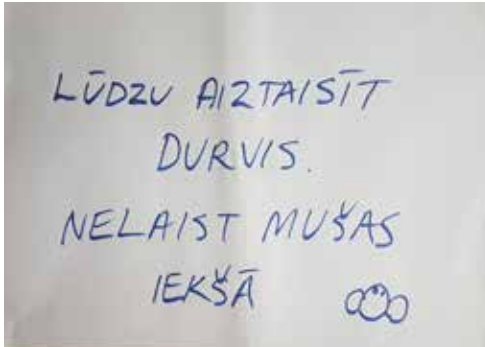 LŪDZU AIZTAISĪT
DURVIS.
NELAIST MUŠAS
IEKŠĀ